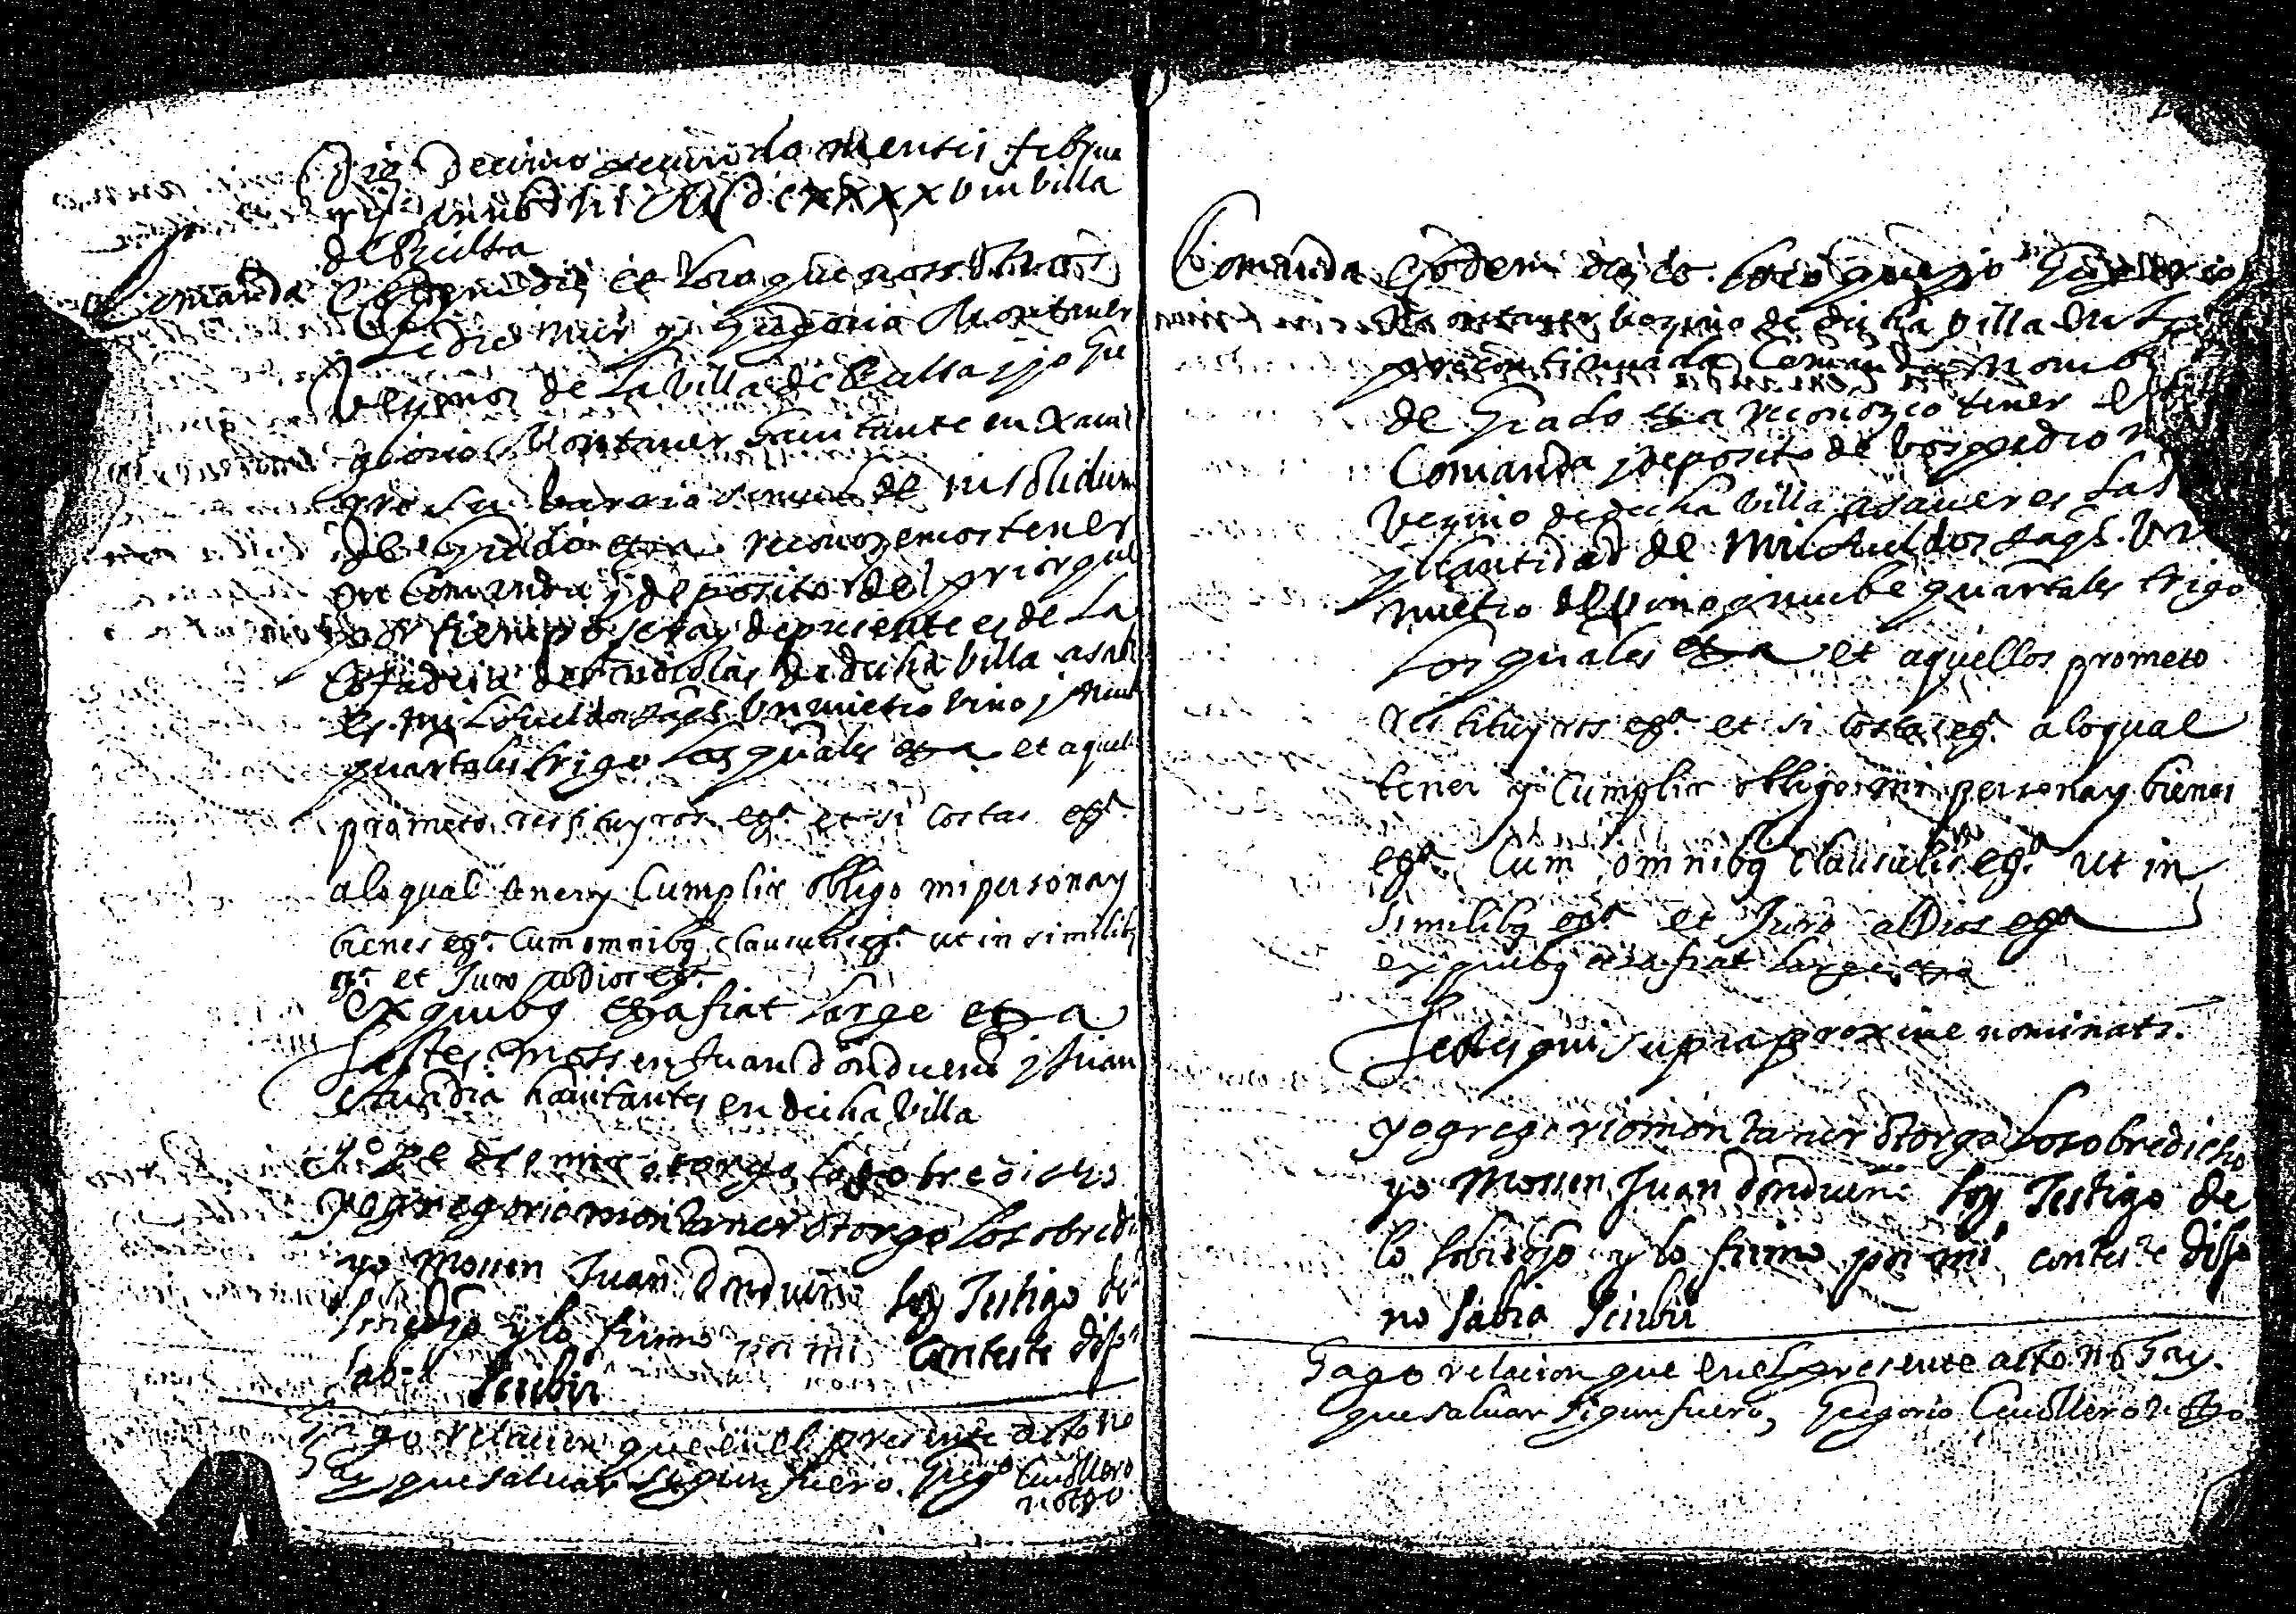 Die Decimo secundo mensis februa
rij anni M dc xxxx v in villa
de Peralta
Comanda Eodem die et loco que nosotros
Pedro Mur y Gregorio Montaner
Vezinos de la villa de Peralta y yo Gre
gorio Montaner hauitante en
de grado etza reconozemos tener
en Comanda y deposito del prior que
por tiempo sera y de presente es de la
Cofadria de dicha villa asab
es mil sueldos jaqs. Un mietro vino y nuebe
quartales trigo los quales etza et aquell
prometo restituyros etzª et si costas etzª
a lo qual tener y Cumplir obligo mi persona y
bienes etzª Cum omnibꝯ clausulis etzª ut in similibꝯ
etzª et Juro a Dios etzª
ex quibꝯ etza fiat large etza
Testes Mossen Juan Donduerno y Juan
hauitantes en dicha Villa
yo Pedro mur otorgo lo sobredicho
yo gregorio montaner otorgo lo sobredi
yo Mossen Juan Donduerno soy Testigo de
lo sobredho y lo firmo por mi conteste dixo
sab Scribir
Hago relacion que en el presente acto no
hay que saluar segun fuero. Gregº Cauallero
notario
Comanda Eodem die et loco que yo Gregorio
Montaner vezino de dicha villa en la
precontinuada Comanda nomb
de Grado etza reconozco tener en
Comanda y deposito de vos pedro m
vezino de dicha villa asaueres las
y Cantidad de Mil sueldos jaqs. Un
mietro de vino y nuebe quartales trigo
Los quales etza et aquellos prometo
restituyros etzª et si costas etzª a lo qual
tener y Cumplir obligo mi persona y bienes
etzª Cum omnibꝯ clausulis etzª ut in
similibꝯ etzª et Juro a Dios etzª
ex quibꝯ etza fiat large etza
Testes qui supra proxime nominati.
yo gregorio montaner otorgo lo sobredicho
yo Mossen Juan Donduerno soy Testigo de
lo sobredho y lo firmo por mi conteste dixo
no sabia Scribir
Hago relacion que en el presente acto no hay
que saluar segun fuero, Gregorio Cauallero notº